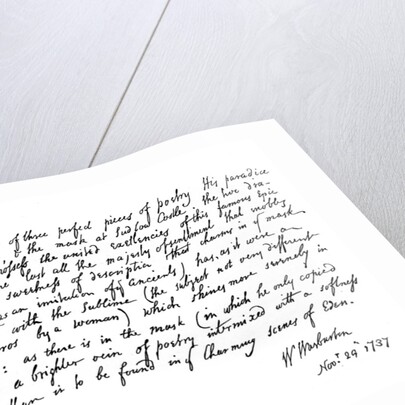 of three perfect pieces of poetry His paradice
of the mask at Ludlow Castle: the two dra-
possess the united excellencies of this famous Epic
last all the majesty of sentiment that nobly
sweetness of description that charms in y mask
as an imitation of y Anceents) has, as it were a
with the Sublime (the subject not very different
ros by a woman) which shines more surenely in
: as there is in the mask (in which he only copied
a brighter vein of poetry intermixed with a softness
than is to be found in y Charming scenes of Eden.
W Warburton
Nov: 29 1737